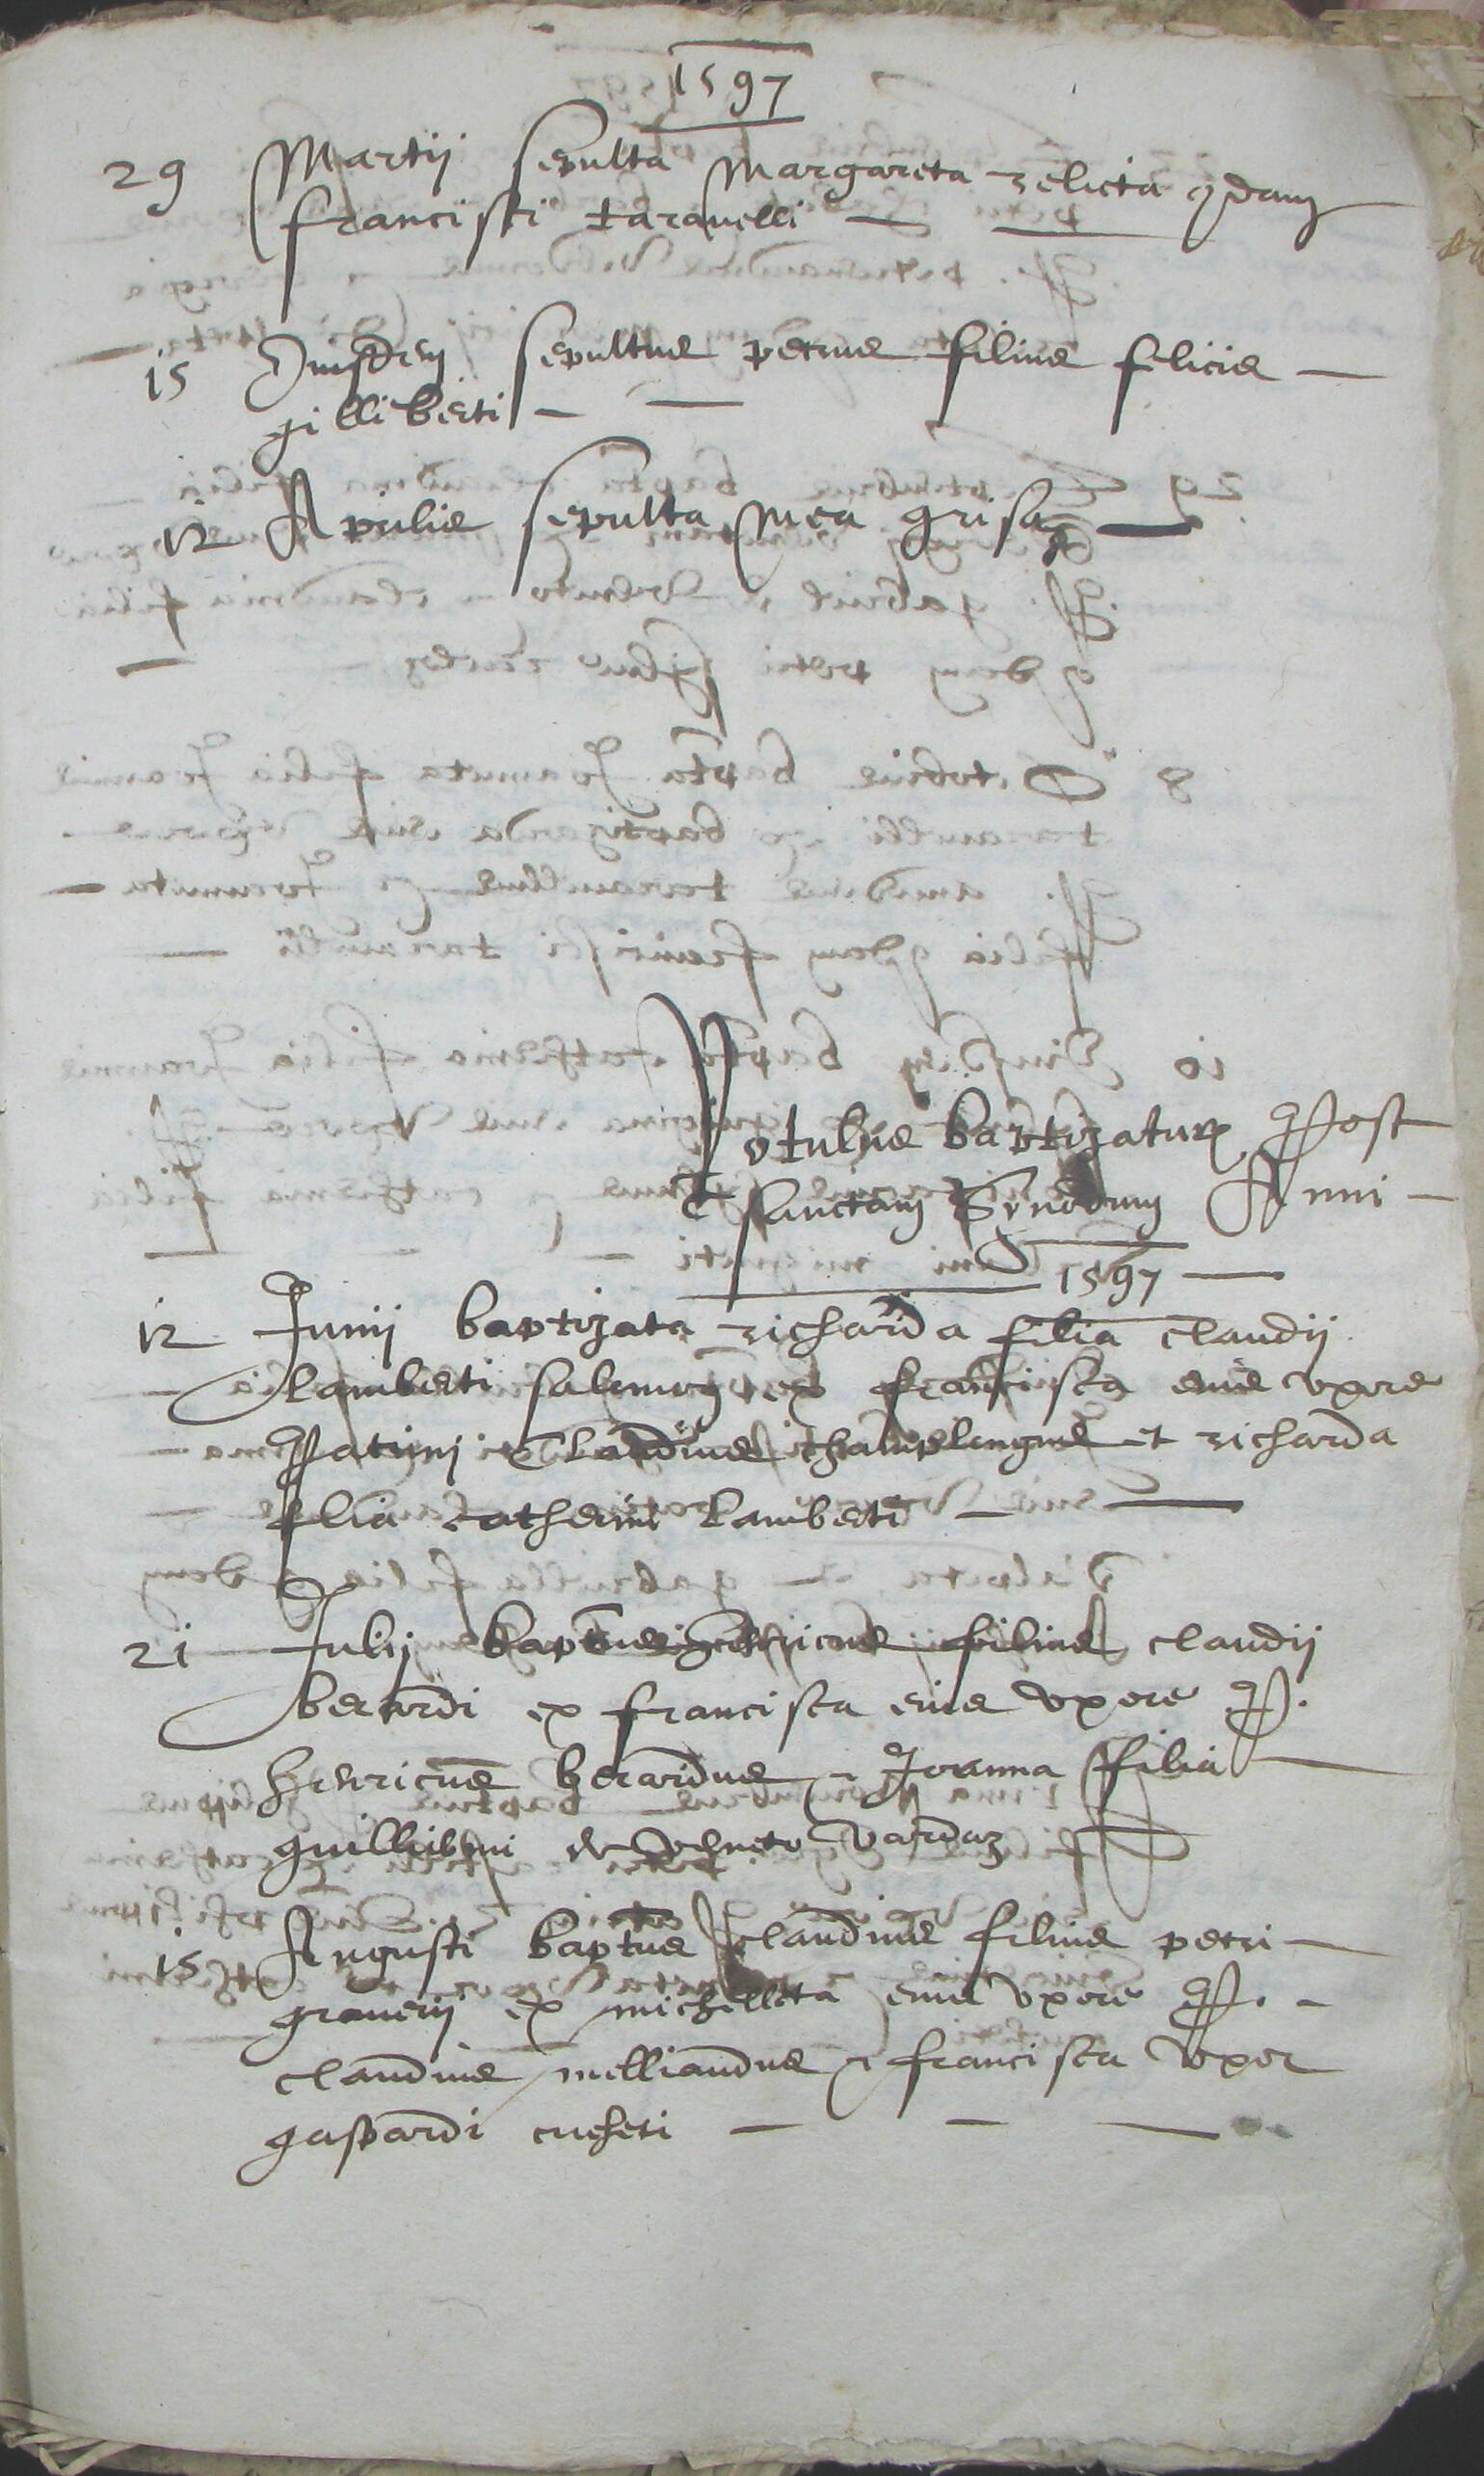 1597
29 Martii sepulta Margareta relicta qdam
francisci taravelli —
15 Eiusdem sepultus petrus filius felicis —
gilliberti —
12 Aprilis sepulta Mea grisa —
Rotulus baptizatur Post
sanctam Synodum Anni —
1597 —
12 Junii baptizata richarda filia claudii
lamberti ex francisca eius uxore
Patrini Claudius et richarda
filia catherini lamberti —
21 Julii baptus henricus filius claudii
berardi ex francisca eius uxore P.
henricus berardus & Joanna filia —
de Veneto
15 Augusti baptus claudius filius petri —
graverii ex michelleta eius uxore P. —
claudius melliandus & francisca uxor
gaspardi cucheti —